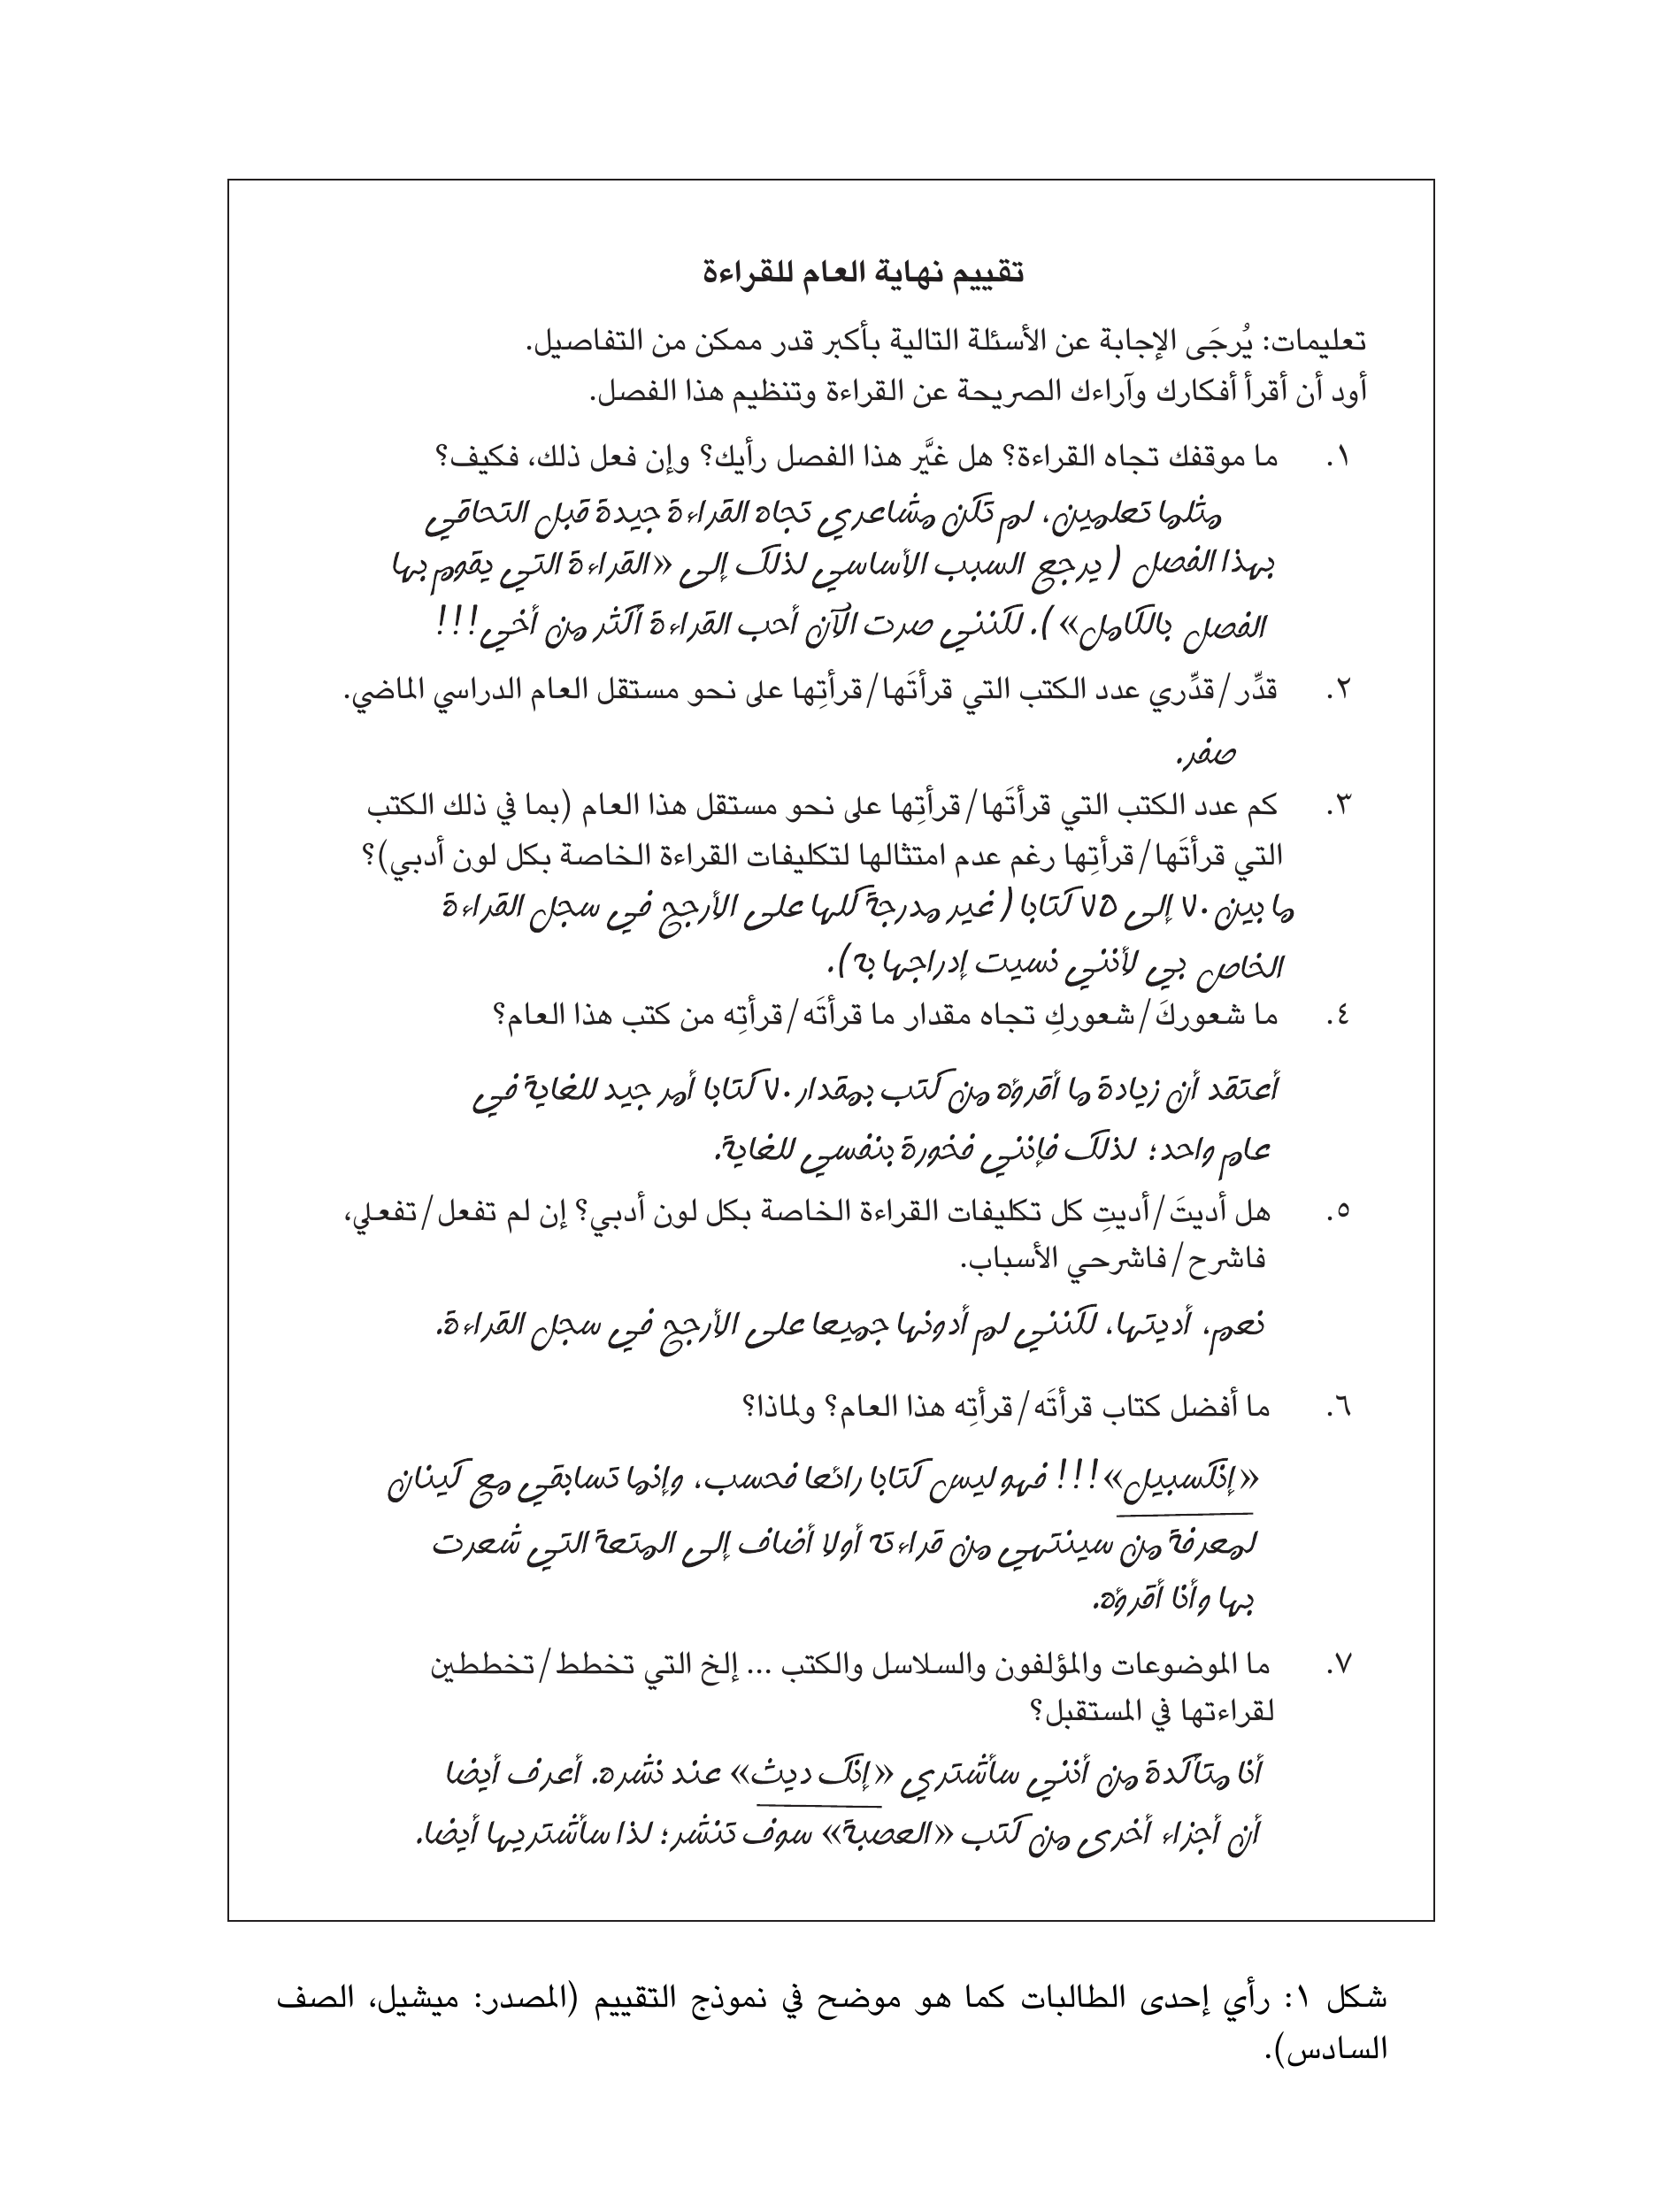 تقييم نهاية العام للقراءة
تعليمات: يُرجَى الإجابة عن الأسئلة التالية بأكبر قدر ممكن من التفاصيل.
أود أن أقرأ أفكارك وآراءك الصريحة عن القراءة وتنظيم هذا الفصل.
١. ما موقفك تجاه القراءة؟ هل غيَّر هذا الفصل رأيك؟ وإن فعل ذلك، فكيف؟
مثلما تعلمين، لم تكن مشاعري تجاه القراءة جيدة قبل التحاقي
بهذا الفصل (يرجع السبب الأساسي لذلك إلى «القراءة التي يقوم بها
الفصل بالكامل»). لكنني صرت الآن أحب القراءة أكثر من أخي!!!
٢. قدِّر/قدِّري عدد الكتب التي قرأتَها/قرأتِها على نحو مستقل العام الدراسي الماضي.
صفر.
٣. كم عدد الكتب التي قرأتَها/قرأتِها على نحو مستقل هذا العام (بما في ذلك الكتب
التي قرأتَها/قرأتِها رغم عدم امتثالها لتكليفات القراءة الخاصة بكل لون أدبي)؟
ما بين ٧٠ إلى ٧٥ كتابا (غير مدرجة كلها على الأرجح في سجل القراءة
الخاص بي لأنني نسيت إدراجها به).
٤. ما شعوركَ/شعوركِ تجاه مقدار ما قرأتَه/قرأتِه من كتب هذا العام؟
أعتقد أن زيادة ما أقرؤه من كتب بمقدار ٧٠ كتابا أمر جيد للغاية في
عام واحد؛ لذلك فإنني فخورة بنفسي للغاية.
٥. هل أديتَ/أديتِ كل تكليفات القراءة الخاصة بكل لون أدبي؟ إن لم تفعل/تفعلي،
فاشرح/فاشرحي الأسباب.
نعم، أديتها، لكنني لم أدونها جميعا على الأرجح في سجل القراءة.
٦. ما أفضل كتاب قرأتَه/قرأتِه هذا العام؟ ولماذا؟
«إنكسبيل»!!! فهو ليس كتابا رائعا فحسب، وإنما تسابقي مع كينان
لمعرفة من سينتهي من قراءته أولا أضاف إلى المتعة التي شعرت
بها وأنا أقرؤه.
٧. ما الموضوعات والمؤلفون والسلاسل والكتب … إلخ التي تخطط/تخططين
لقراءتها في المستقبل؟
أنا متأكدة من أنني سأشتري «إنك ديث» عند نشره. أعرف أيضا
أن أجزاء أخرى من كتب «العصبة» سوف تنشر؛ لذا سأشتريها أيضا.
شكل ١: رأي إحدى الطالبات كما هو موضح في نموذج التقييم (المصدر: ميشيل، الصف
السادس).